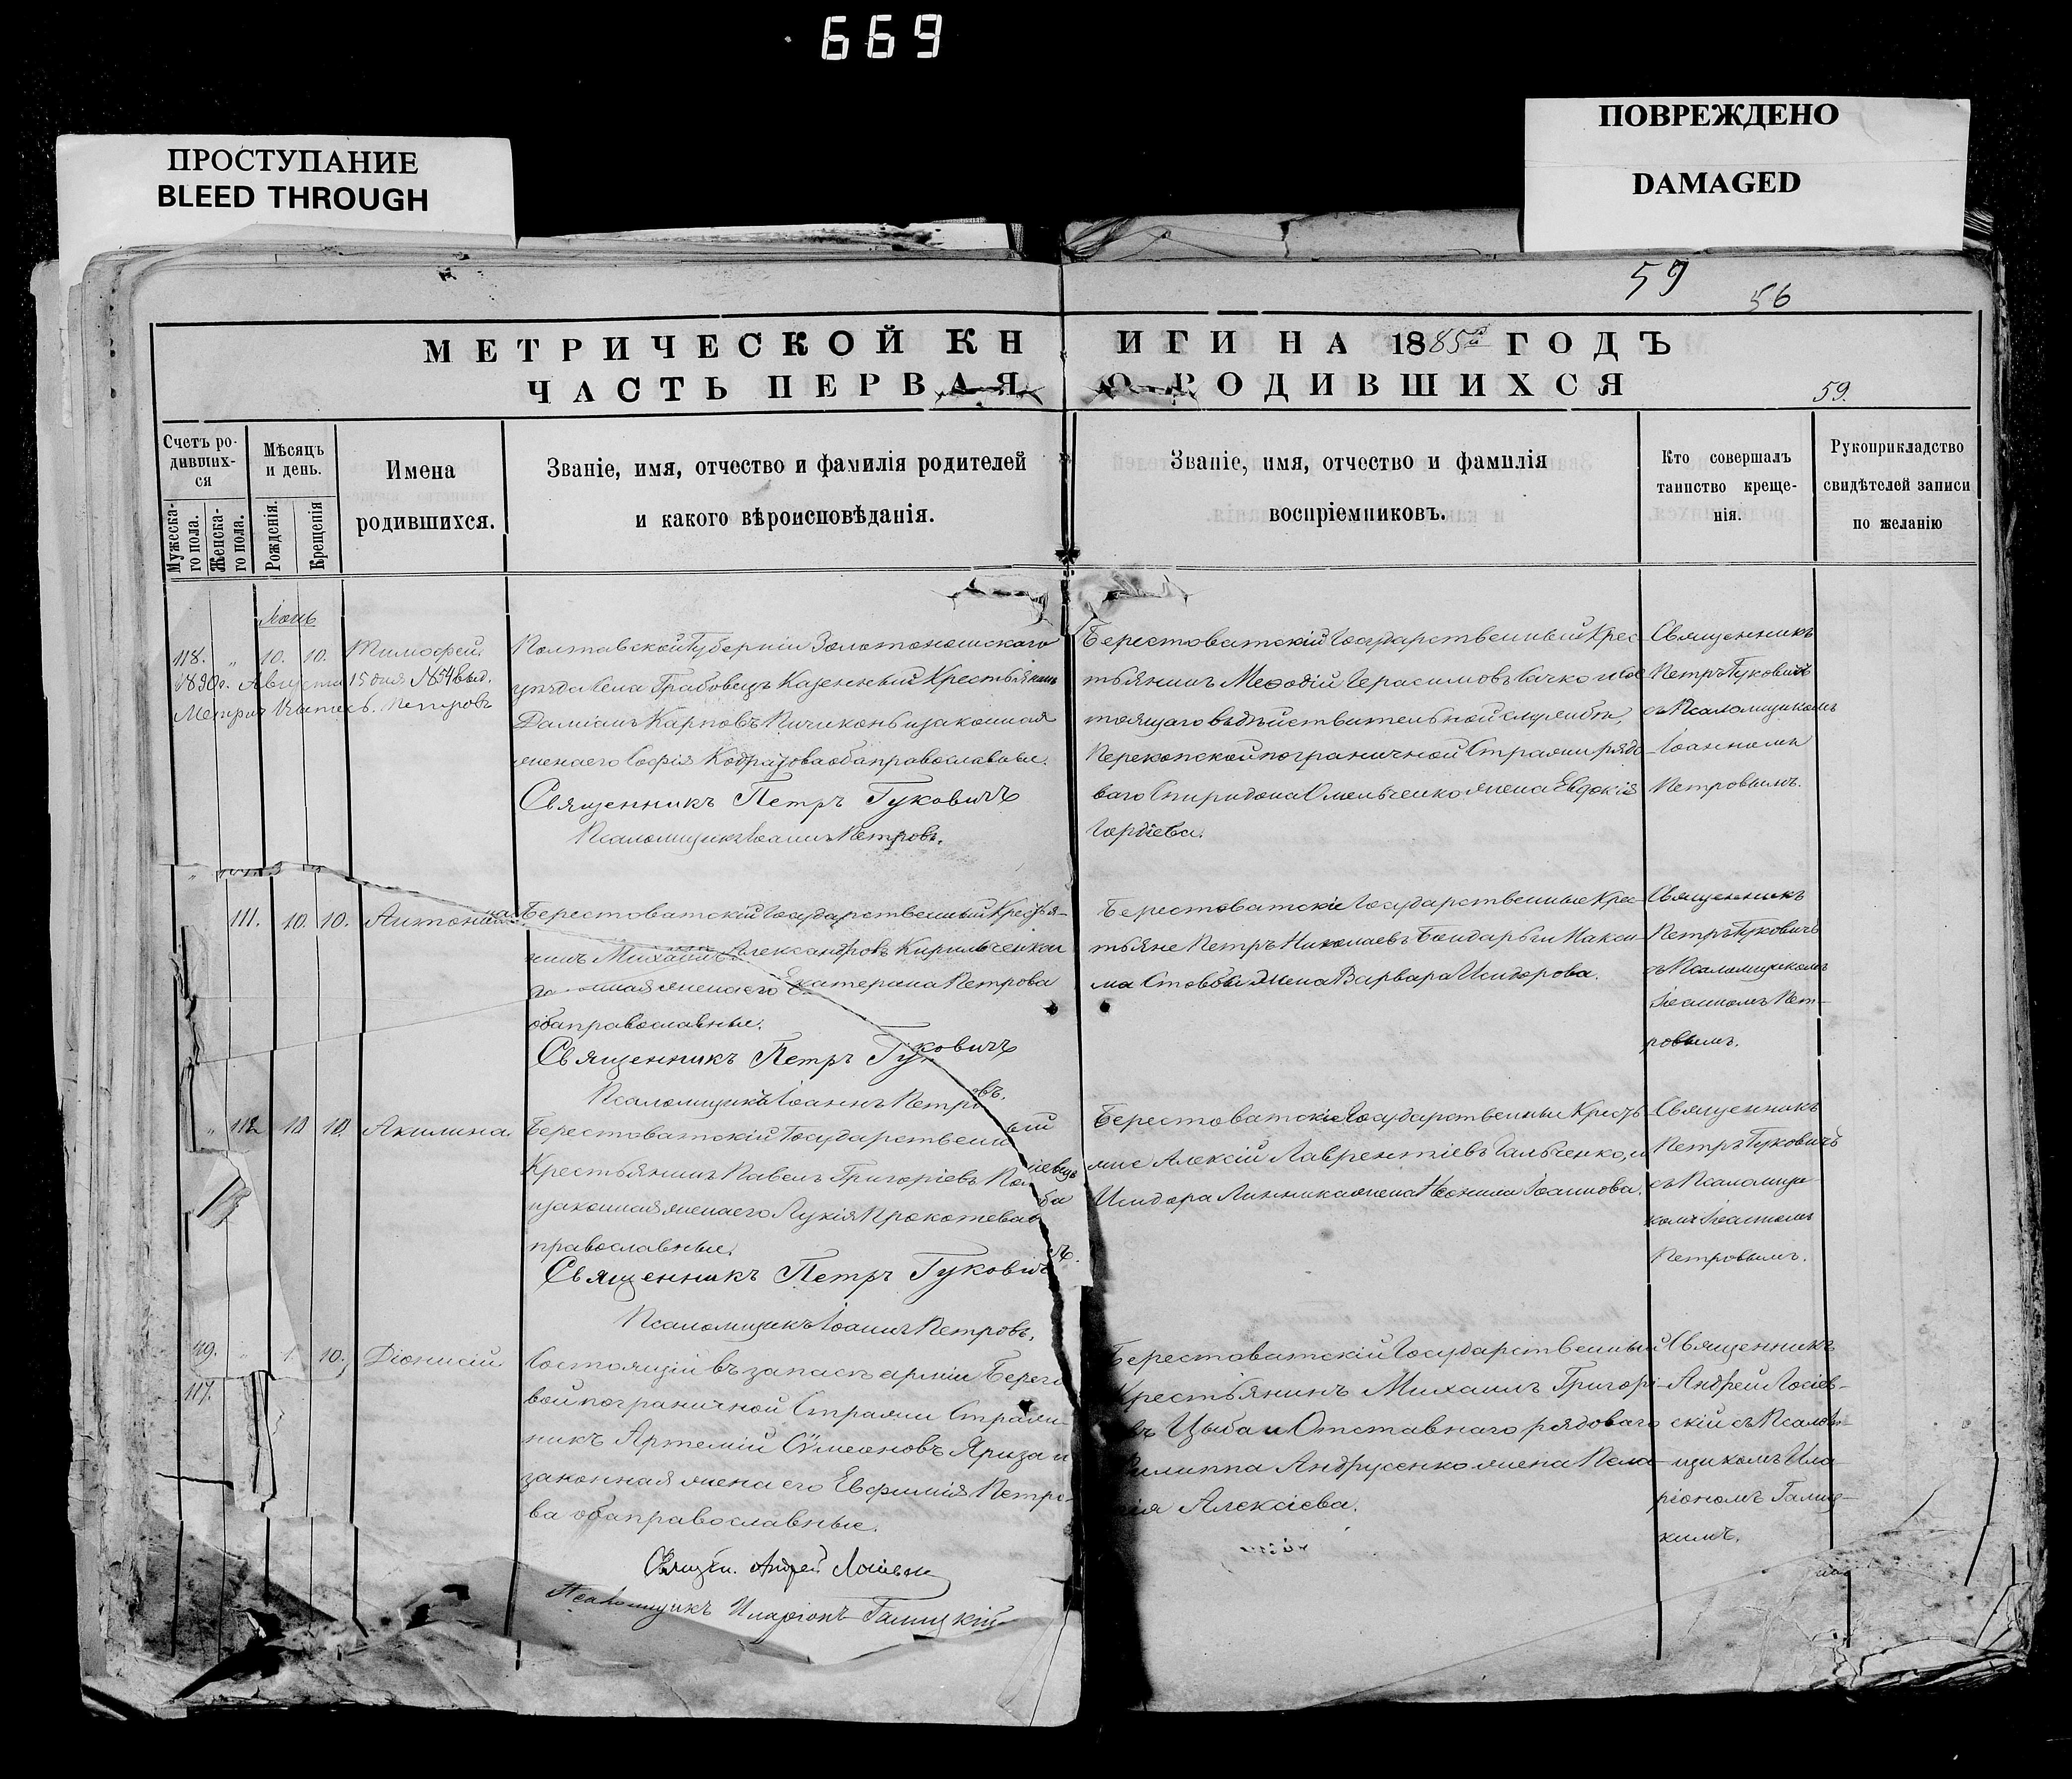 669
ПРОСТУПАНИЕ
BLEED THROUGH
ПОВРЕЖДЕНО
DAMAGED
59
56
МЕТРИЧЕСКОЙ КНИГИ НА 1885й ГОДЪ
ЧАСТЬ ПЕРВАЯ О РОДИВШИХСЯ
59.
Счетъ ро-
дивших-
ся
Мужеска-
го пола.
Женска-
го пола.
Мѣсяцъ
и день.
Рожденія.
Крещенія
Имена
родившихся.
Званіе, имя, отчество и фамилія родителей
и какого вѣроисповѣданія.
Званіе, имя, отчество и фамилія
воспріемниковъ.
Кто совершалъ
таинство креще-
нія.
Рукоприкладство
свидѣтелей записи
по желанію
118. " 10. 10. Тимофей.
Августа 15 дня выд.
Петровъ
Полтавской Губерніи Золотоношскаго
уѣзда села Грабовецъ Казенный Крестьянинъ
Даміанъ Карповъ и законная
жена его Софія обаправославные.
Священникъ Петръ Гуковичъ
Псаломщикъ Іоаннъ Петровъ.
Берестоватскій Государственный Крес
тьянинъ Меѳодій Герасимовъ и сос
тоящаго въ дѣйствительной службѣ,
Перекопской пограничной Стражи рядо
ваго Спиридона Омельченко жена Евдокія
Гордіева.
Священникъ
Петръ Гуковичъ
съ Псаломщикомъ
Іоанномъ
Петровымъ.
111. 10. 10. Антонина
Берестоватскій Государственный Крестья-
нинъ Михаилъ Александровъ Кирильченко и
жена его Екатерина Петрова
обаправославные.
Священникъ Петръ Гуковичъ
Псаломщикъ Іоаннъ Петровъ.
Берестоватскіе Государственные Крес-
тьяне Петръ Николаевъ Бондарь и Макси-
ма жена Варвара Исидорова.
Священникъ
Петръ Гуковичъ
съ Псаломщикомъ
Іоанномъ Пет-
ровымъ.
" 112 10 10. Акилина.
Берестоватскій Государственный
Крестьянинъ Павелъ Григоріевъ
и законная жена его Лукія оба
православные.
Священникъ Петръ Гуковичъ.
Псаломщикъ Іоаннъ Петровъ.
Берестоватскіе Государственные Кресть
Алексій Лаврентіевъ Гальченко, и
Исидора Линника жена Неонила Іоаннова.
Священникъ
Петръ Гуковичъ
съ Псаломщи
комъ Іоанномъ
Петровымъ.
119. 10. Діонисій.
117.
Состоящій въ запасѣ арміи Берего
вой пограничной Стражи Страж-
никъ Артемій Сѵмеоновъ Яриза и
законная жена его Евфимія Петро-
ва обаправославные.
Андрей
Псаломщикъ Иларіонъ Галицкій
Берестоватскій Государственный
Крестьянинъ Михаилъ Григорі-
въ Цыба и Отставнаго рядоваго
Филиппа Андрусенко жена Пела-
гія Алексіева.
Священникъ
Андрей Лосiев-
скій съ Псалом-
щикомъ Ила
ріономъ Галиц-
кимъ.